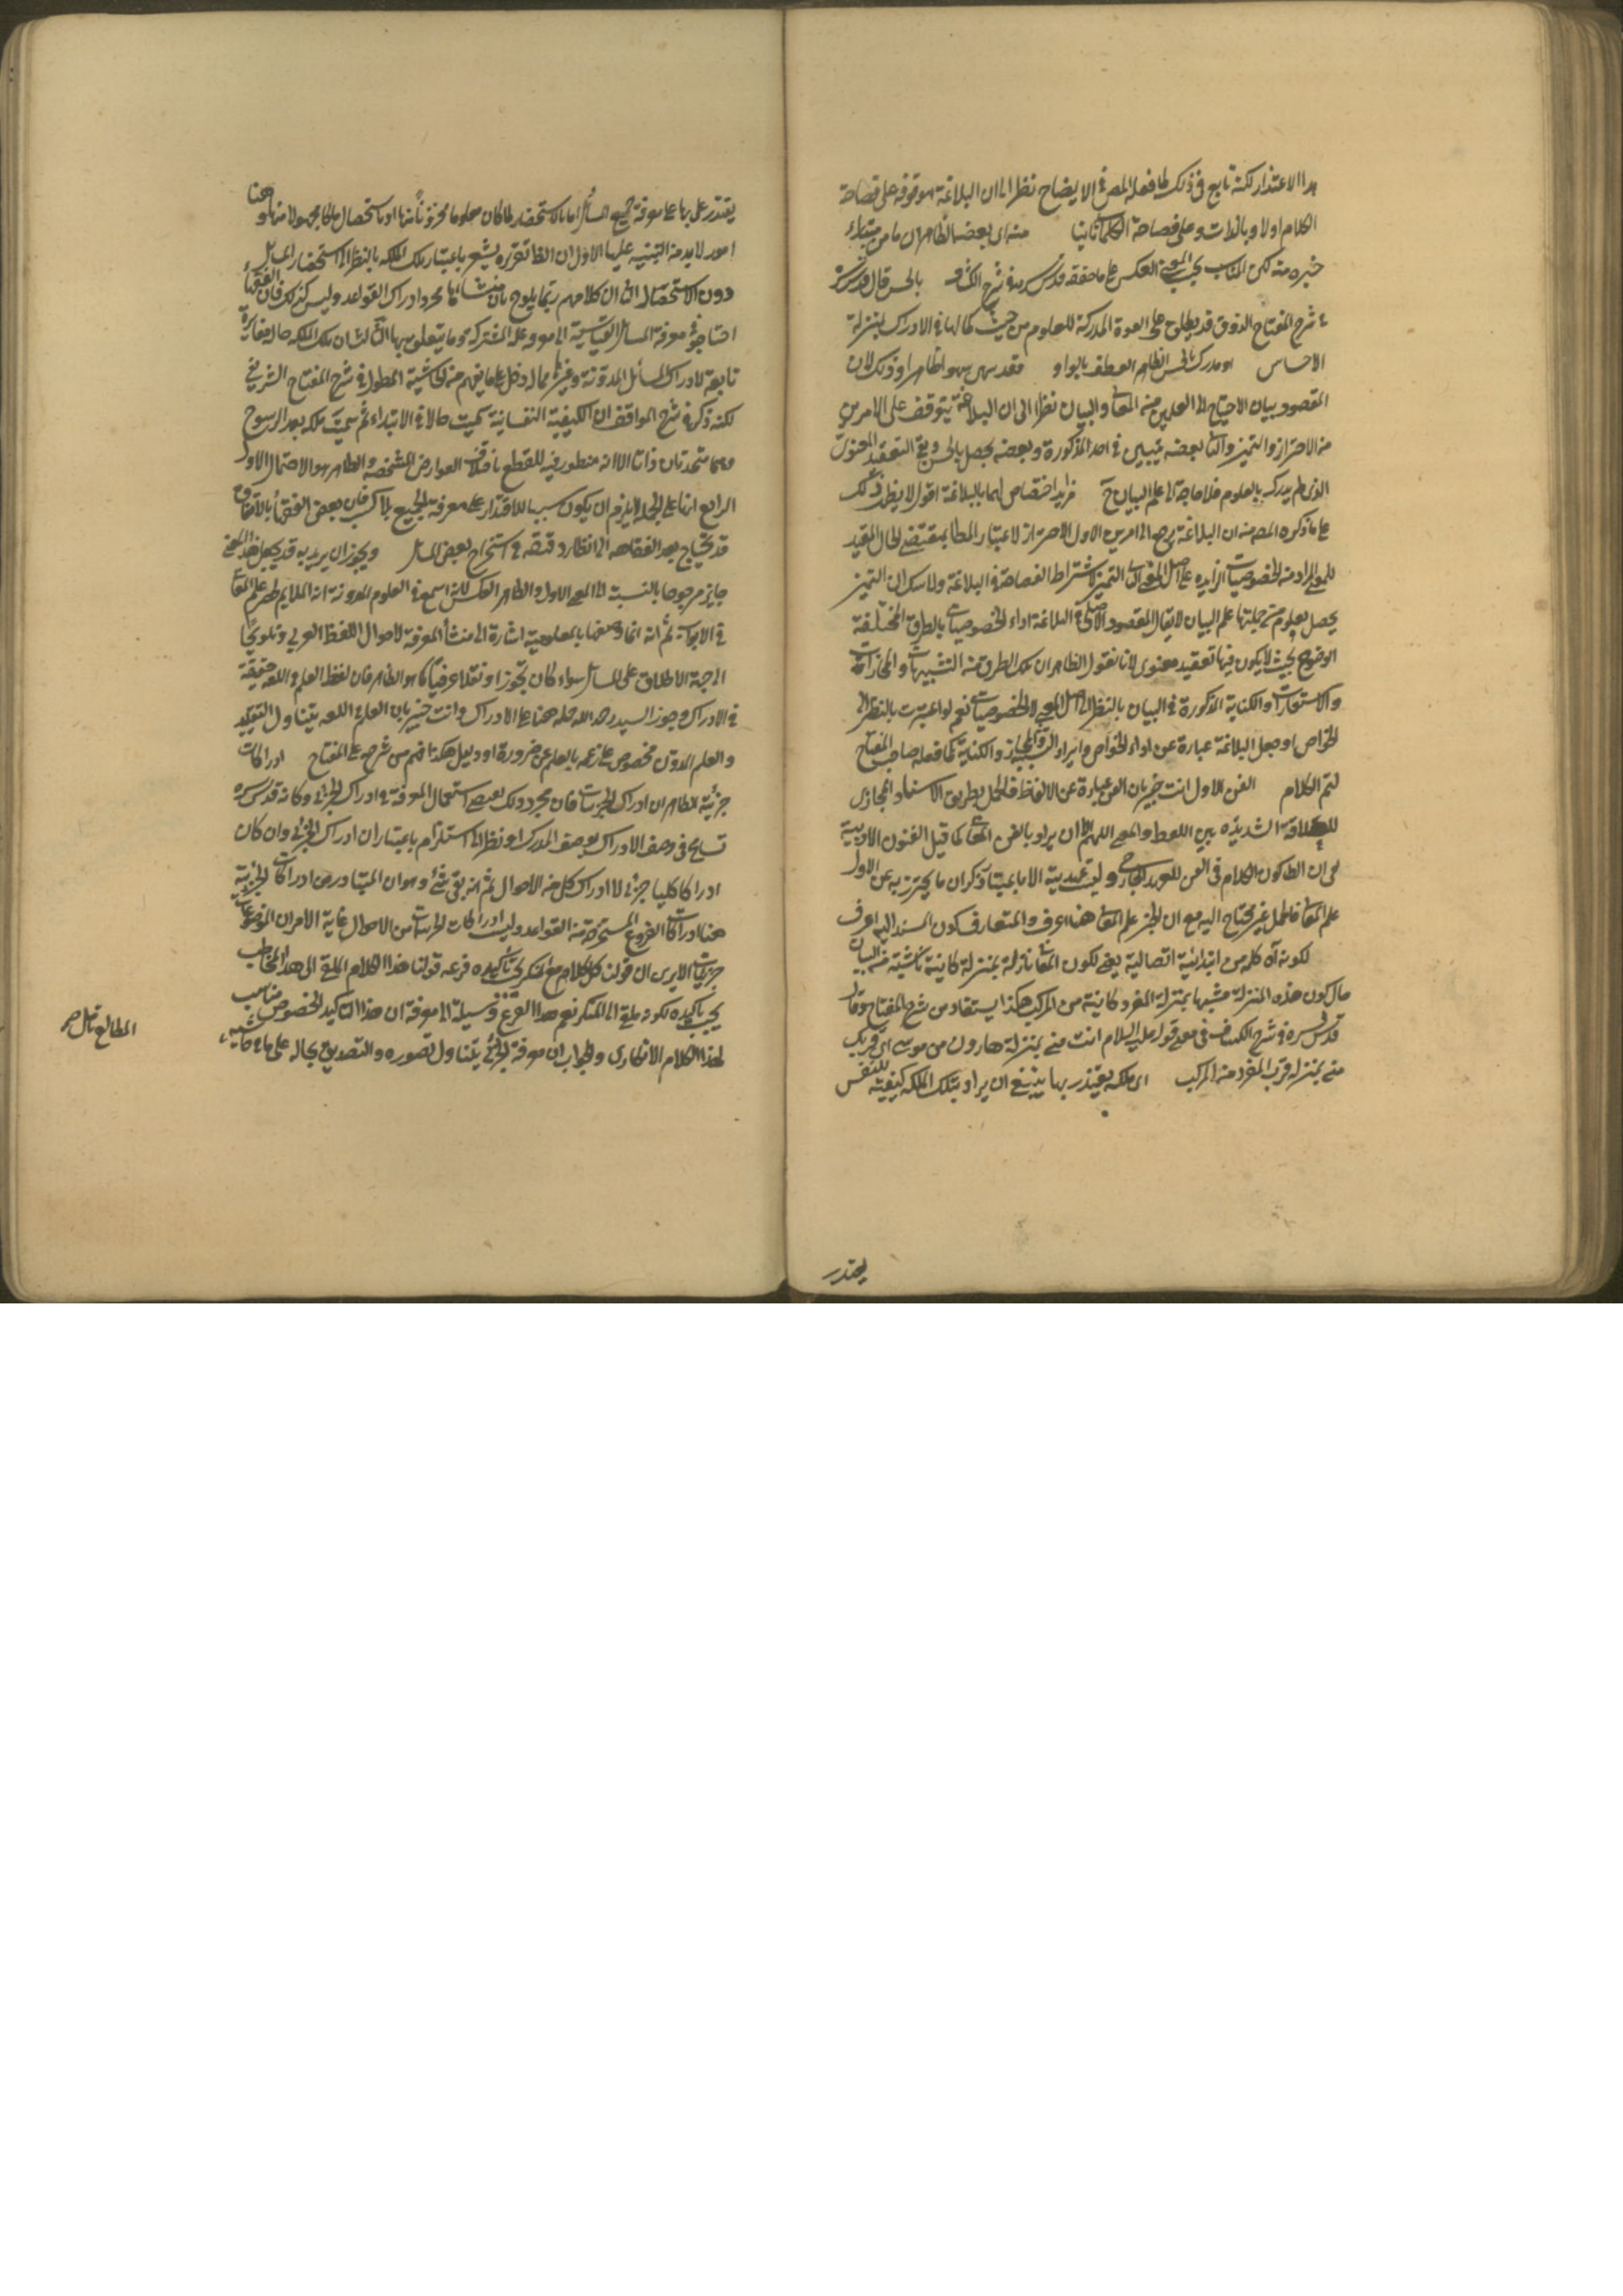 هذا الاعتذار لكنه تابع في ذلك لما فعله المص في الايضاح نظرا الى ان البلاغة موقوفة على فصاحة
الكلام اولا وبالذات وعلى فصاحة الكلمة ثانيا منه اى بعضه الظاهر ان ما من مبتداء
خبره منه لكن المناسب بحسب المعنى العكس على ما حققه قدس سره في شرح الكشاف بالحس قال قدس سره
في شرح المفتاح الذوق قد يطلق على القوة المدركة للعلوم من حيث كمالها في الادراك بمنزلة
الاحساس او مدرك بالحس الظاهر العطف بالواو فقد سهى سهوا ظاهرا وذلك لان
المقصود بيان الاحتياج الى العلمين منه المعانى والبيان نظرا الى ان البلاغة تتوقف على الامرين
من الاحتراز والتميز والثانى بعضه يتبين في احد المذكورة وبعضه يحصل بالحس وبقى التعقيد المعنوى
الذى لم يدرك بالعلوم فلا حاجة الى علم البيان ح مزيد اختصاص لهما بالبلاغة اقول لا يظهر ذلك
على ما ذكره المص من ان البلاغة مرجعه الى امرين الاول الاحتراز لاعتبار المطابقة لمقتضى الحال المفيد
للمعنى المراد منه الخصوصيات الزايدة على اصل المعنى الثانى التميز لاشتراط الفصاحة في البلاغة ولا شك ان التميز
يحصل بعلوم من جملتها علم البيان لا يقال المقصود الاصلى في البلاغة اداء الخصوصيات بالطرق المختلفة
الوضوح بحيث لا يكون فيها تعقيد معنوى لانا نقول الظاهر ان تلك الطرق من التشبيهات والمجازات
والاستعارات والكناية المذكورة في البيان بالنظر الى اصل المعنى لا الخصوصيات نعم لو اعتبرت بالنظر الى
الخواص او جعل البلاغة عبارة عن اداء الخواص وايراد التشبيه والمجاز والكناية كما فعله صاحب المفتاح
لتم الكلام الفن الاول انت خبير بان الفن عبارة عن الالفاظ فالحمل بطريق الاسناد المجازى
للعلاقة الشديدة بين اللفظ والمعنى اللهم الا ان يراد بالفن المعانى كما قيل الفنون الادبية
علم المعانى فالحمل غير محتاج اليه مع ان الجزء علم المعانى هنا اعرف والمتعارف كون المسند اليه اعرف
لكونه اه كلمة من ابتدائية اتصالية يعنى لكون المعانى نازلة بمنزلة كاينة ناشية من البيان
حال كون هذه المنزلة مشبها بمنزلة المفرد كاينة من المركب هكذا يستفاد من شرح المفتاح وقال
قدس سره في شرح الكشاف في معنى قوله عليه السلام انت منى بمنزلة هارون من موسى اى قربك
منى بمنزلة قرب المفرد من المركب اى ملكة يقتدر بها ينبغى ان يراد بتلك الملكة كيفية للنفس
يقتدر
يقتدر بها على معرفة جميع المسائل اما بالاستحضار لما كان معلوما مخزونا منها او باستحصال ما كان مجهولا منها وهنا
امور لابد من التنبيه عليها الاول ان الظ تقريره يشعر باعتبار تلك الملكة بالنظر الى استحضار المسائل
دون الاستحصال الثانى ان كلامهم ربما يلوح بان منشائها مجرد ادراك القواعد وليس كذلك فان الفقهاء
احتاجوا في معرفة المسائل القياسية الى معرفة علة المشتركة وما يتعلق بها الثالث ان تلك الملكة حال مغايرة
تابعة لادراك المسائل المدونة وغيرها مما له دخل على ما يفهم من حاشية المطول في شرح المفتاح الشريفى
لكنه ذكر في شرح المواقف ان الكيفية النفسانية سميت حالا في الابتداء ثم سميت ملكة بعد الرسوخ
وهما متحدتان ذاتا الا انه منظور فيه للقطع باختلاف العوارض المشخصة والظاهر هو الاحتمال الاول
الرابع انها على الجملة لا يلزم ان يكون سببا للاقتدار على معرفة الجميع بلا كسب فان بعض الفقهاء بالاتفاق
قد يحتاج بعد الفقاهة الى انظار دقيقة في استخراج بعض المسائل ويجوز ان يريد به قد يجعل هذا المعنى
جايز مرجوحا بالنسبة الى المعنى الاول والظاهر العكس لانه اسم في العلوم المدونة انه الملايم لحصر علم المعانى
في الابواب ثم انه انما وصفها بالمعلومية اشارة الى منشأ المعرفة لاحوال اللفظ العربى وتلويحا
الى جهة الاطلاق على المسائل سواء كان تجوزا او نقلا عرفيا كما هو الظاهر فان لفظ العلم في اللغة حقيقة
في الادراك وجوز السيد رحمه الله حمله هنا على الادراك وانت خبير بان العلم في اللغة يتناول التقليد
والعلم المدون مخصوص على زعمه بالعلم عن ضرورة او دليل هكذا فهم من شرحه على المفتاح ادراكات
جزئية الظاهر ان ادراك الجزئيات فان مجرد ذلك يقتضى استعمال المعرفة في ادراك الجزئى وكانه قدس سره
تسامح في وصف الادراك بوصف المدرك او نظر الى استلزام باعتبار ان ادراك الجزئى وان كان
ادراكا كليا جزئى لا ادراك كل من الاحوال ثم انه بقى شئ وهو ان المتبادر من ادراكات الجزئية
هنا ادراكات الفروع المستخرجة من القواعد وليست ادراكات الجزئيات من الاحوال غاية الامر ان الموضوعات
جزئيات الا يرى ان قولنا كل كلام مع المنكر يجب تأكيده فرعه قولنا هذا الكلام الملقى الى هذا المخاطب
يجب تأكيده لكونه ملقى الى المنكر نعم هذا الفرع وسيلة الى معرفة ان هذا التأكيد الخصوص مناسب
لهذا الكلام الانكارى والجواب ان معرفة الجزئى يتناول تصوره والتصديق بحاله على ما في حاشية
المطالع تأمل